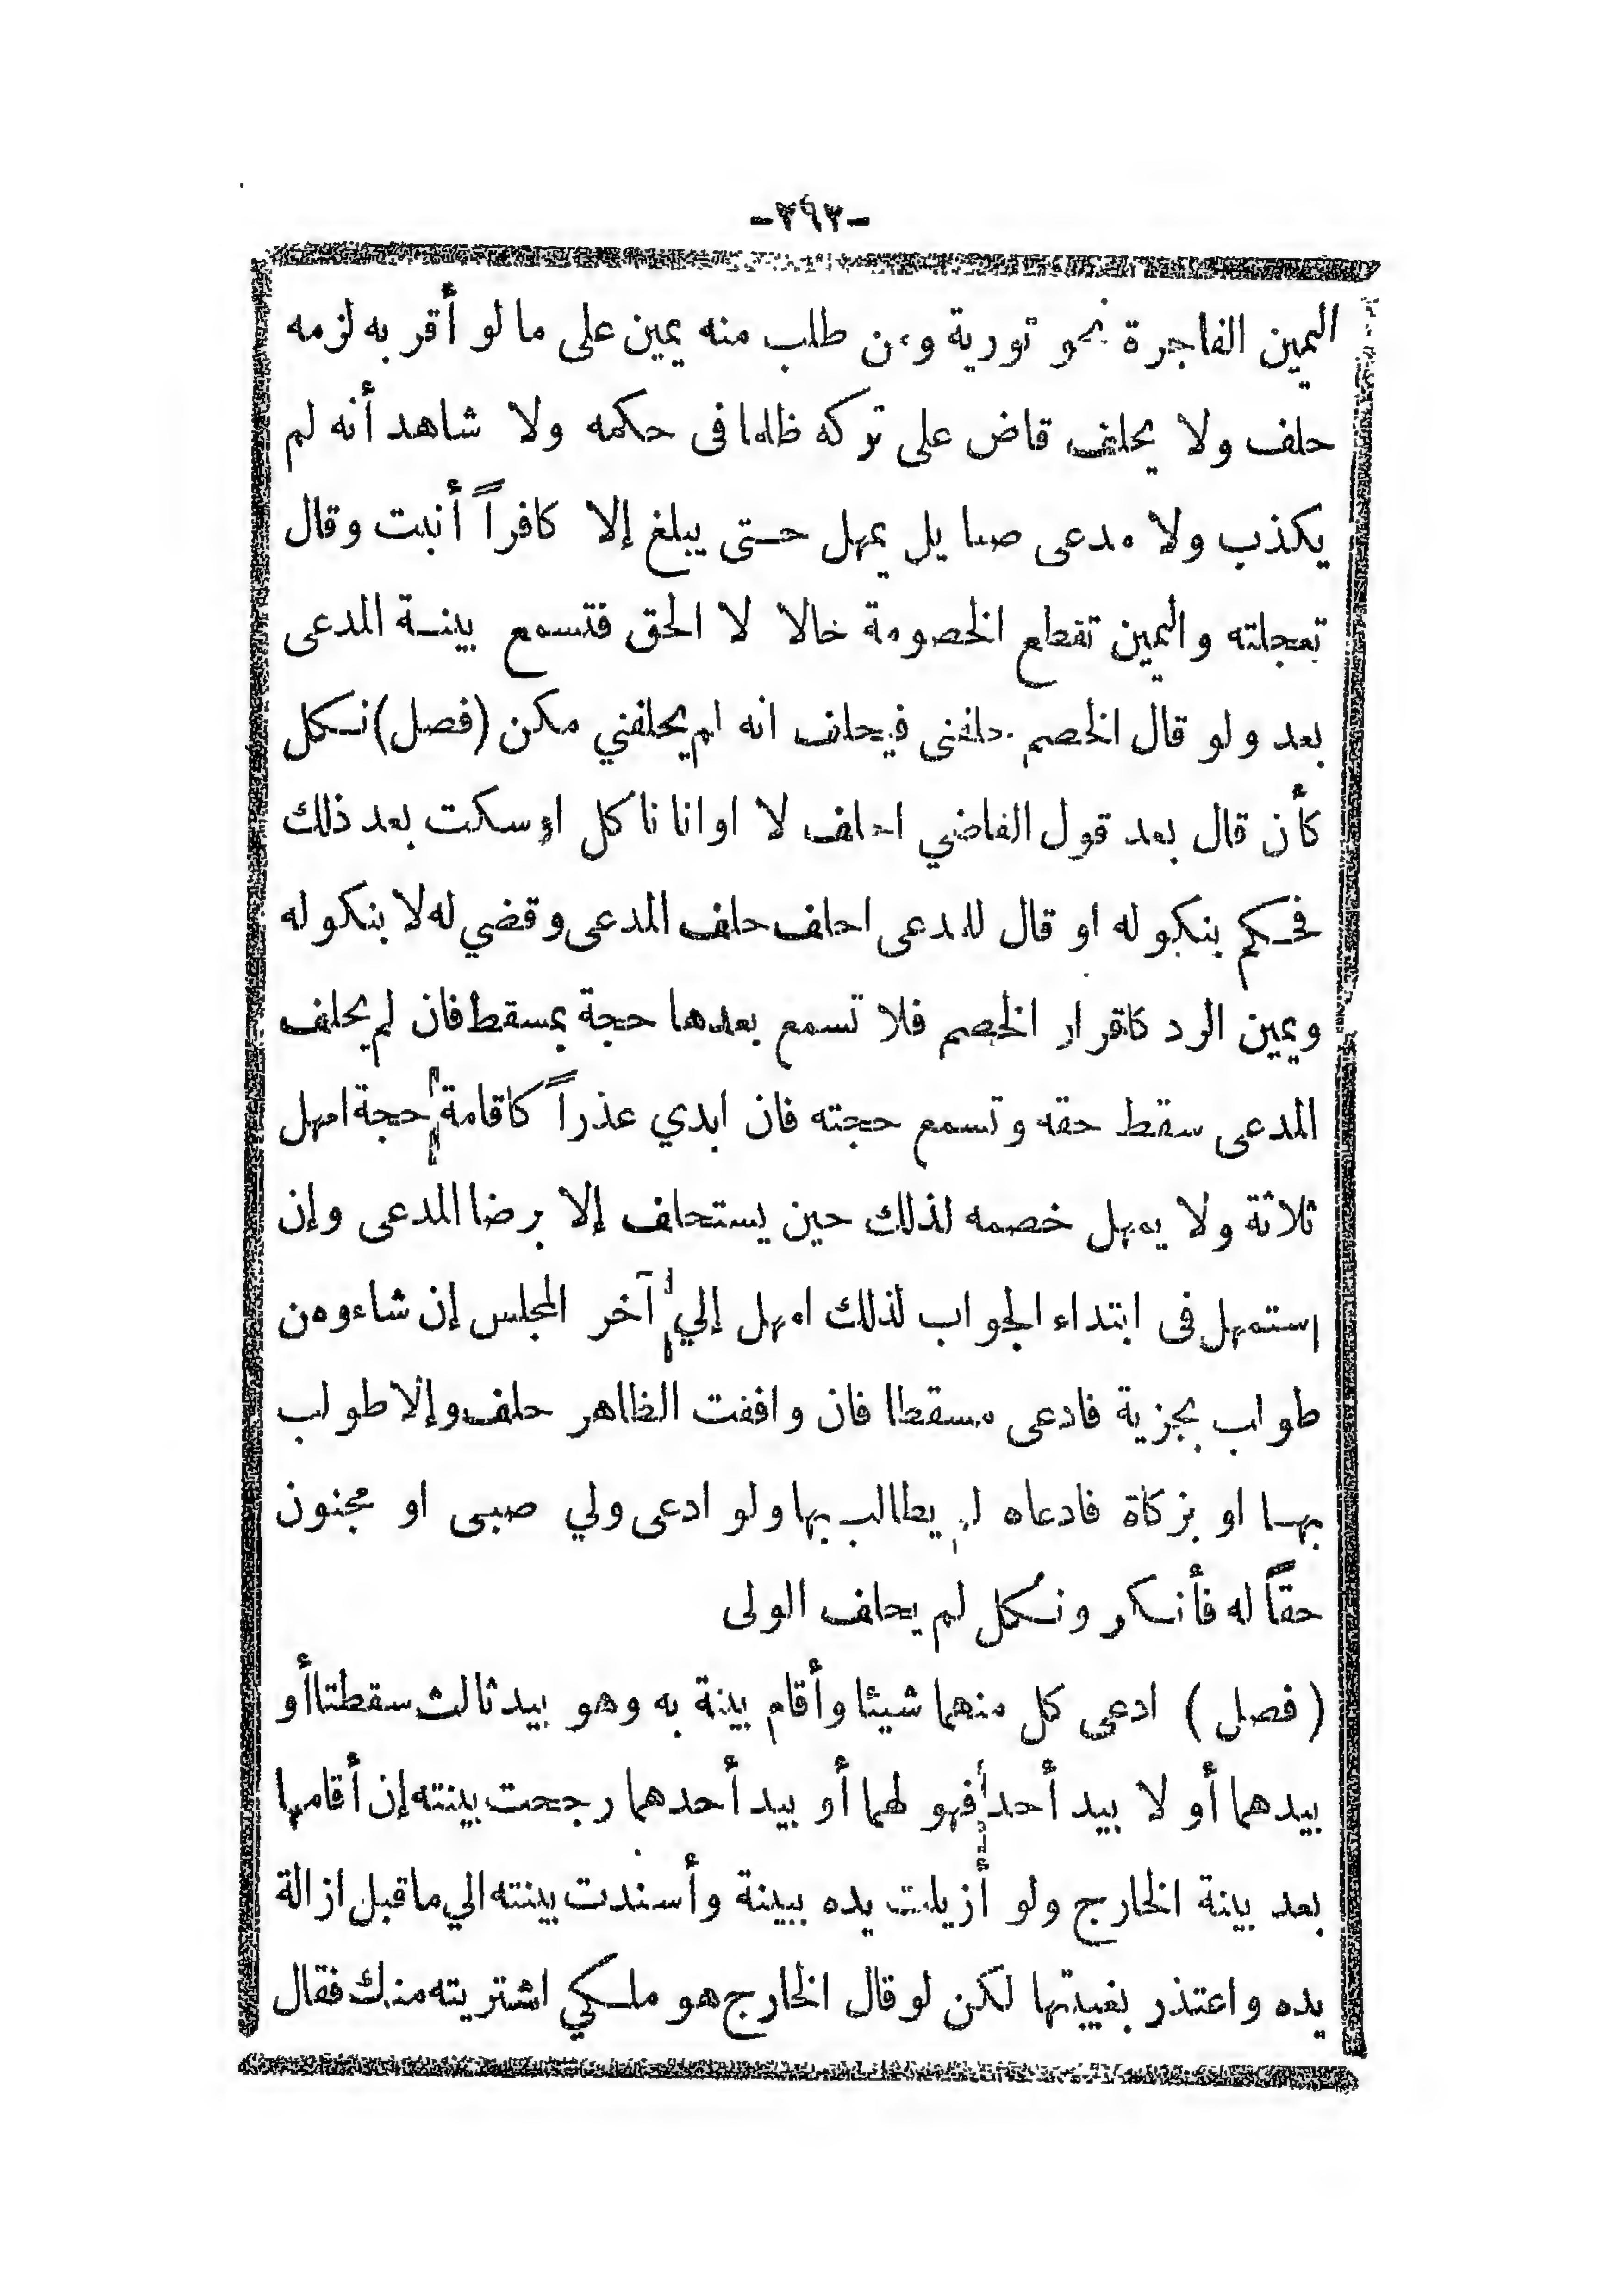 -٣٩٣-
اليمين الفاجرة نحو تورية ومن طلب منه يمين على ما لو أقر به لزمه
حلف ولا يحلف قاض على تركه ظلما فى حكمه ولا شاهد أنه لم
يكذب ولا مدعى صبا بل يمهل حتى يبلغ إلا كافراً أنبت وقال
تعجلته واليمين تقطع الخصومة حالا لا الحق فتسمع بينة المدعى
بعد ولو قال الخصم حلفنى فيحلف انه لم يحلفني مكن (فصل) نكل
كأن قال بعد قول القاضي احلف لا او انا ناكل او سكت بعد ذلك
فحكم بنكوله او قال للمدعى احلف حلف المدعى وقضي له لا بنكوله
ويمين الرد كاقرار الخصم فلا تسمع بعدها حجة بمسقط فان لم يحلف
المدعى سقط حقه وتسمع حجته فان ابدي عذراً كاقامة حجة امهل
ثلاثة ولا يمهل خصمه لذلك حين يستحلف إلا برضا المدعى وإن
استمهل فى ابتداء الجواب لذلك امهل إلي آخر المجلس إن شاء ومن
طولب بجزية فادعى مسقطا فان وافقت الظاهر حلف وإلا طولب
بها او بزكاة فادعاه لم يطالب بها ولو ادعى ولي صبى او مجنون
حقاً له فأنكر ونكل لم يحلف الولى
(فصل) ادعى كل منهما شيئا وأقام بينة به وهو بيد ثالث سقطتا أو
بيدهما أو لا بيد أحد فهو لهما أو بيد أحدهما رجحت بينته إن أقامها
بعد بينة الخارج ولو أزيلت يده ببينة وأسندت بينته الي ما قبل ازالة
يده واعتذر بغيبتها لكن لو قال الخارج هو ملكي اشتريته منك فقال